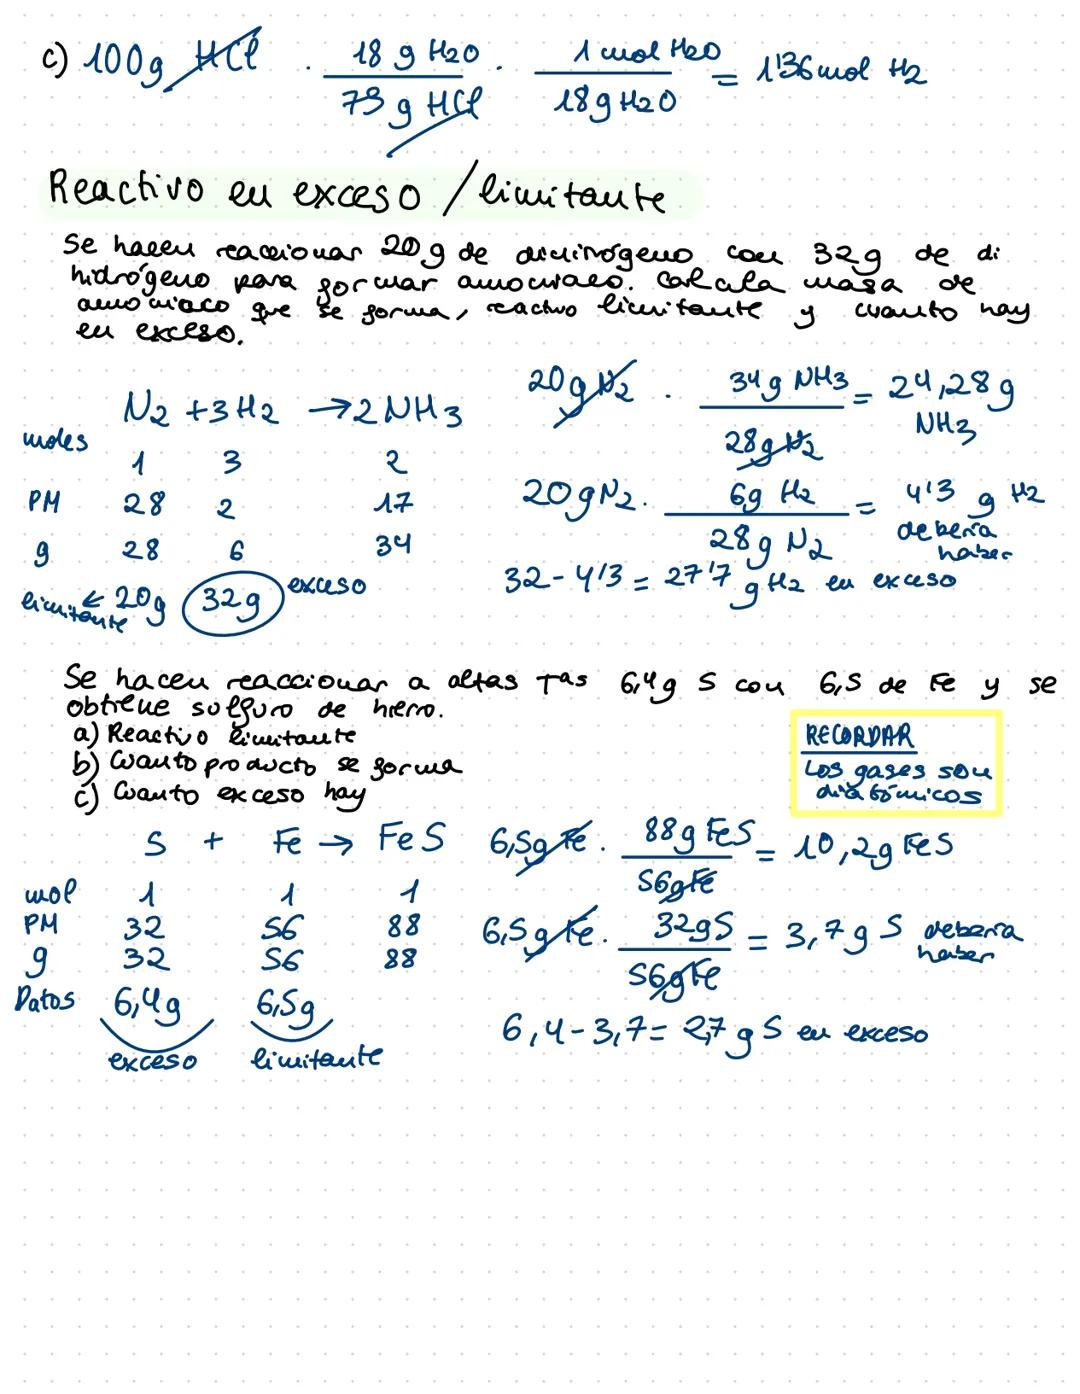 c) 100g HCl · 18 g H2O / 73 g HCl · 1 mol H2O / 18 g H2O = 1'36 mol H2
Reactivo en exceso / limitante
Se hacen reaccionar 20g de dinitrógeno con 32g de di
hidrógeno para formar amoniaco. Calcula masa de
amoniaco que se forma, reactivo limitante y cuanto hay
en exceso.
N2 + 3H2 → 2 NH3
moles 1 3 2
PM 28 2 17
g 28 6 34
limitante ← 20g 32g exceso
20g N2 · 34g NH3 / 28g N2 = 24,28g NH3
20g N2 · 6g H2 / 28g N2 = 4'3 g H2 deberia haber
32 - 4'3 = 27'7 g H2 en exceso
Se hacen reaccionar a altas Tas 6,4g S con 6,5 de Fe y se
obtiene sulfuro de hierro.
a) Reactivo limitante
b) Cuanto producto se forma
c) Cuanto exceso hay
RECORDAR
Los gases son
diatómicos
S + Fe → FeS
mol 1 1 1
PM 32 56 88
g 32 56 88
Datos 6,4g 6,5g
exceso limitante
6,5g Fe · 88g FeS / 56g Fe = 10,2g FeS
6,5g Fe · 32g S / 56g Fe = 3,7g S deberia haber
6,4 - 3,7 = 2,7 g S en exceso